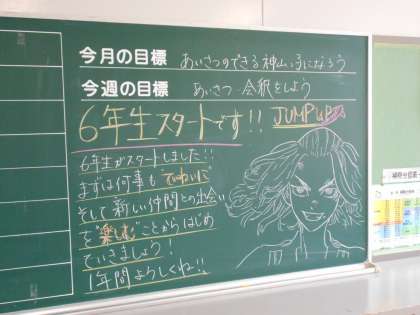 今月の目標 あいさつのできる神山っ子になろう
今週の目標 あいさつ 会釈をしよう
6年生スタートです!! JUMP UP
6年生がスタートしました!!
まずは何事も ていねいに
そして新しい仲間との出会い
を"楽しむ"ことからはじめ
ていきましょう!
1年間よろしくね!!